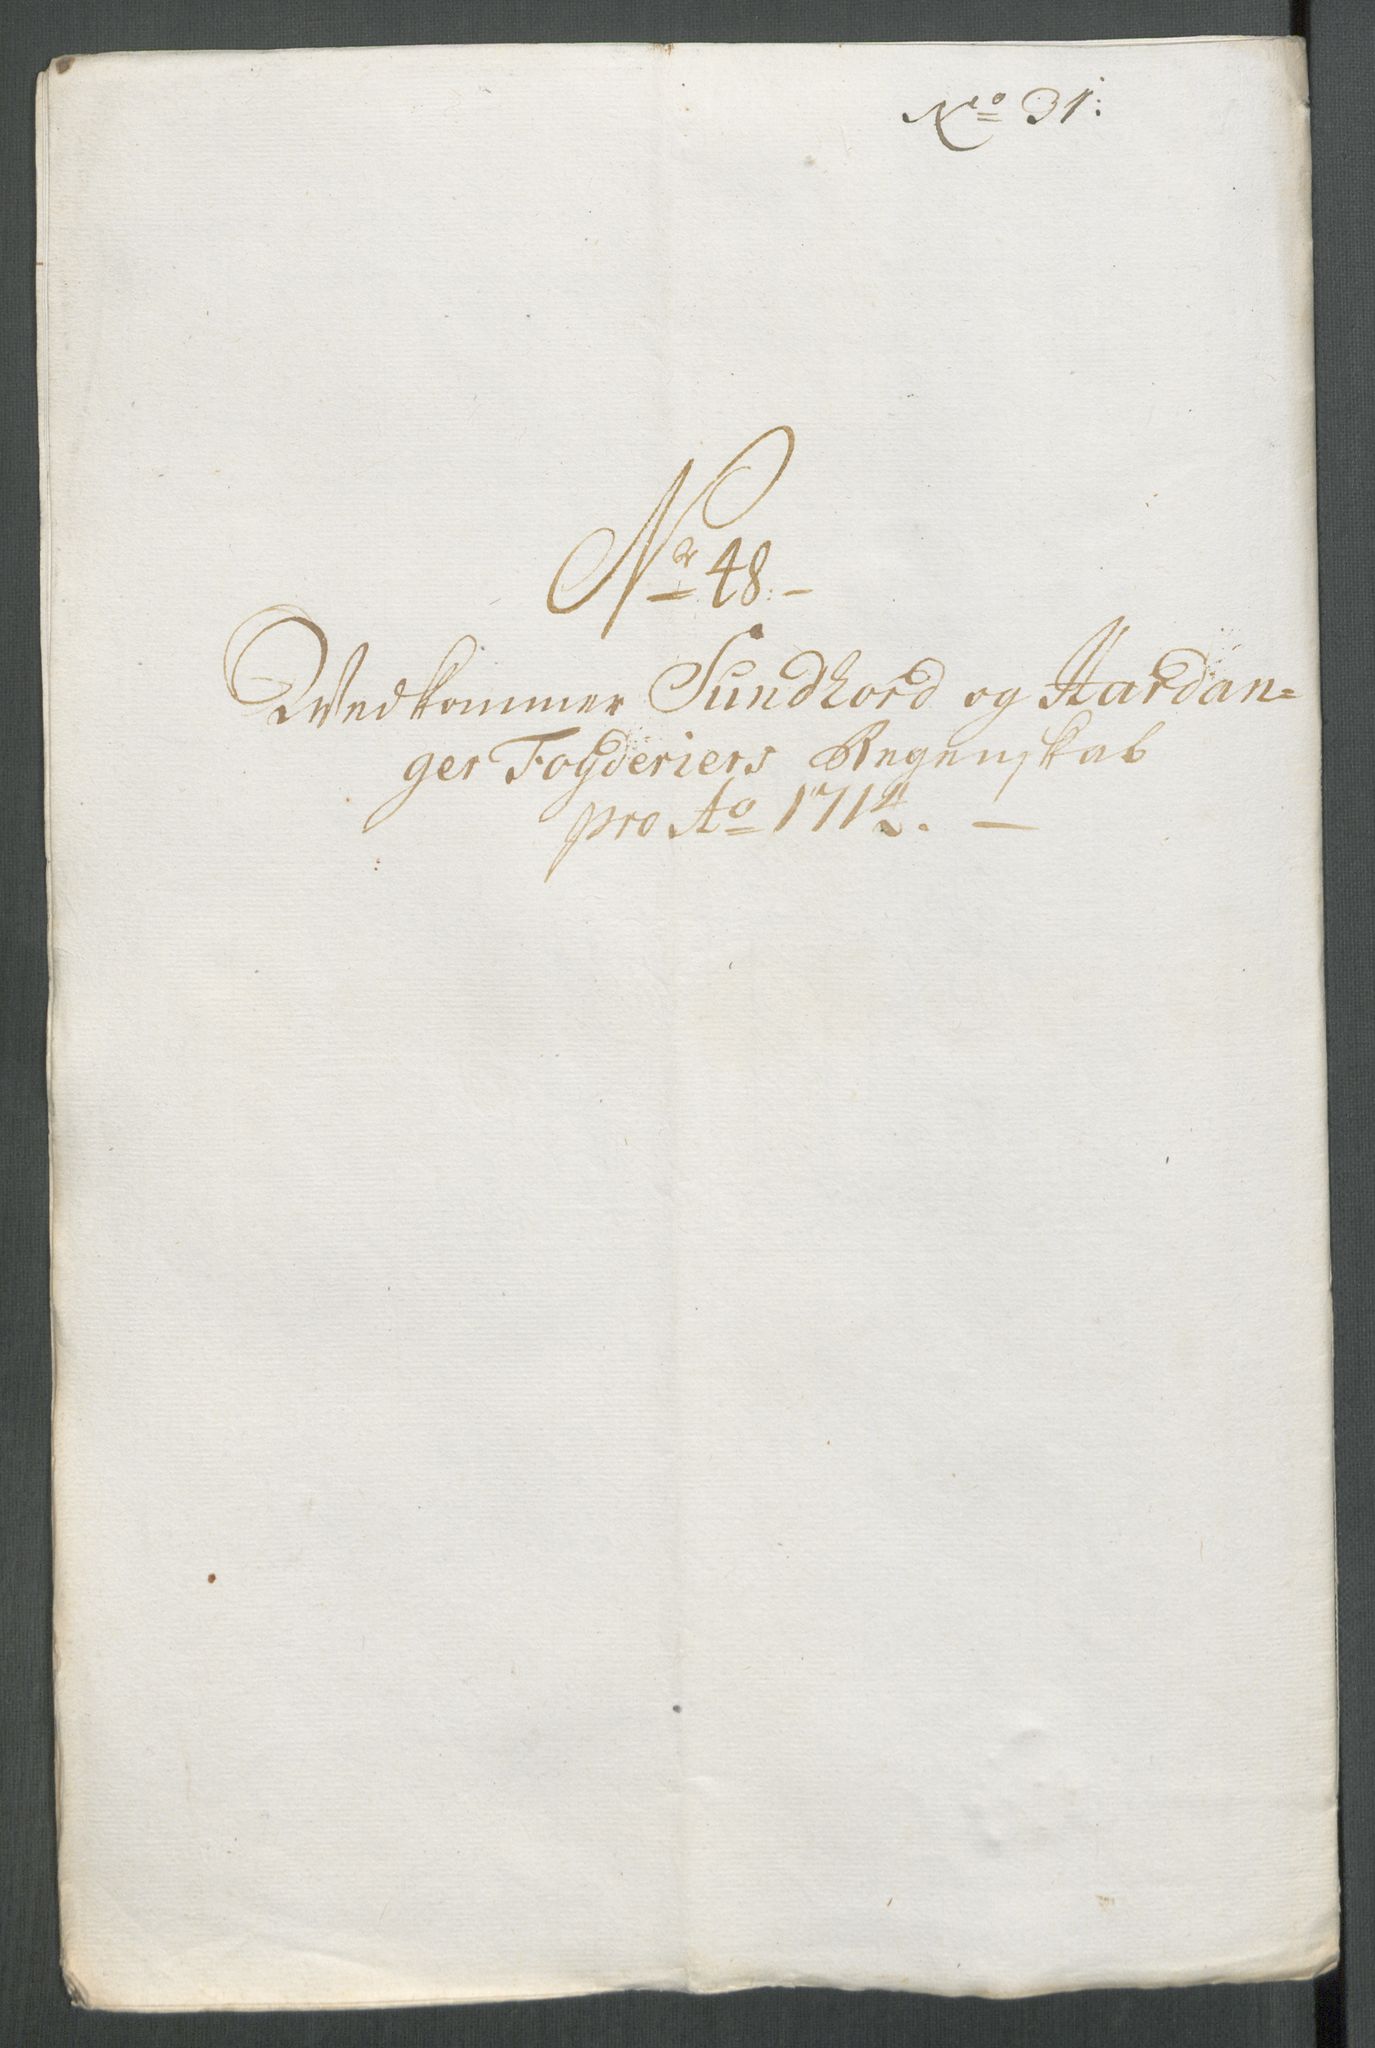 No 31:
Nr 48. –
Vedkommer Sundhord og Hardan=
ger Fogderiers Regenskab
pro Ao 1714. –